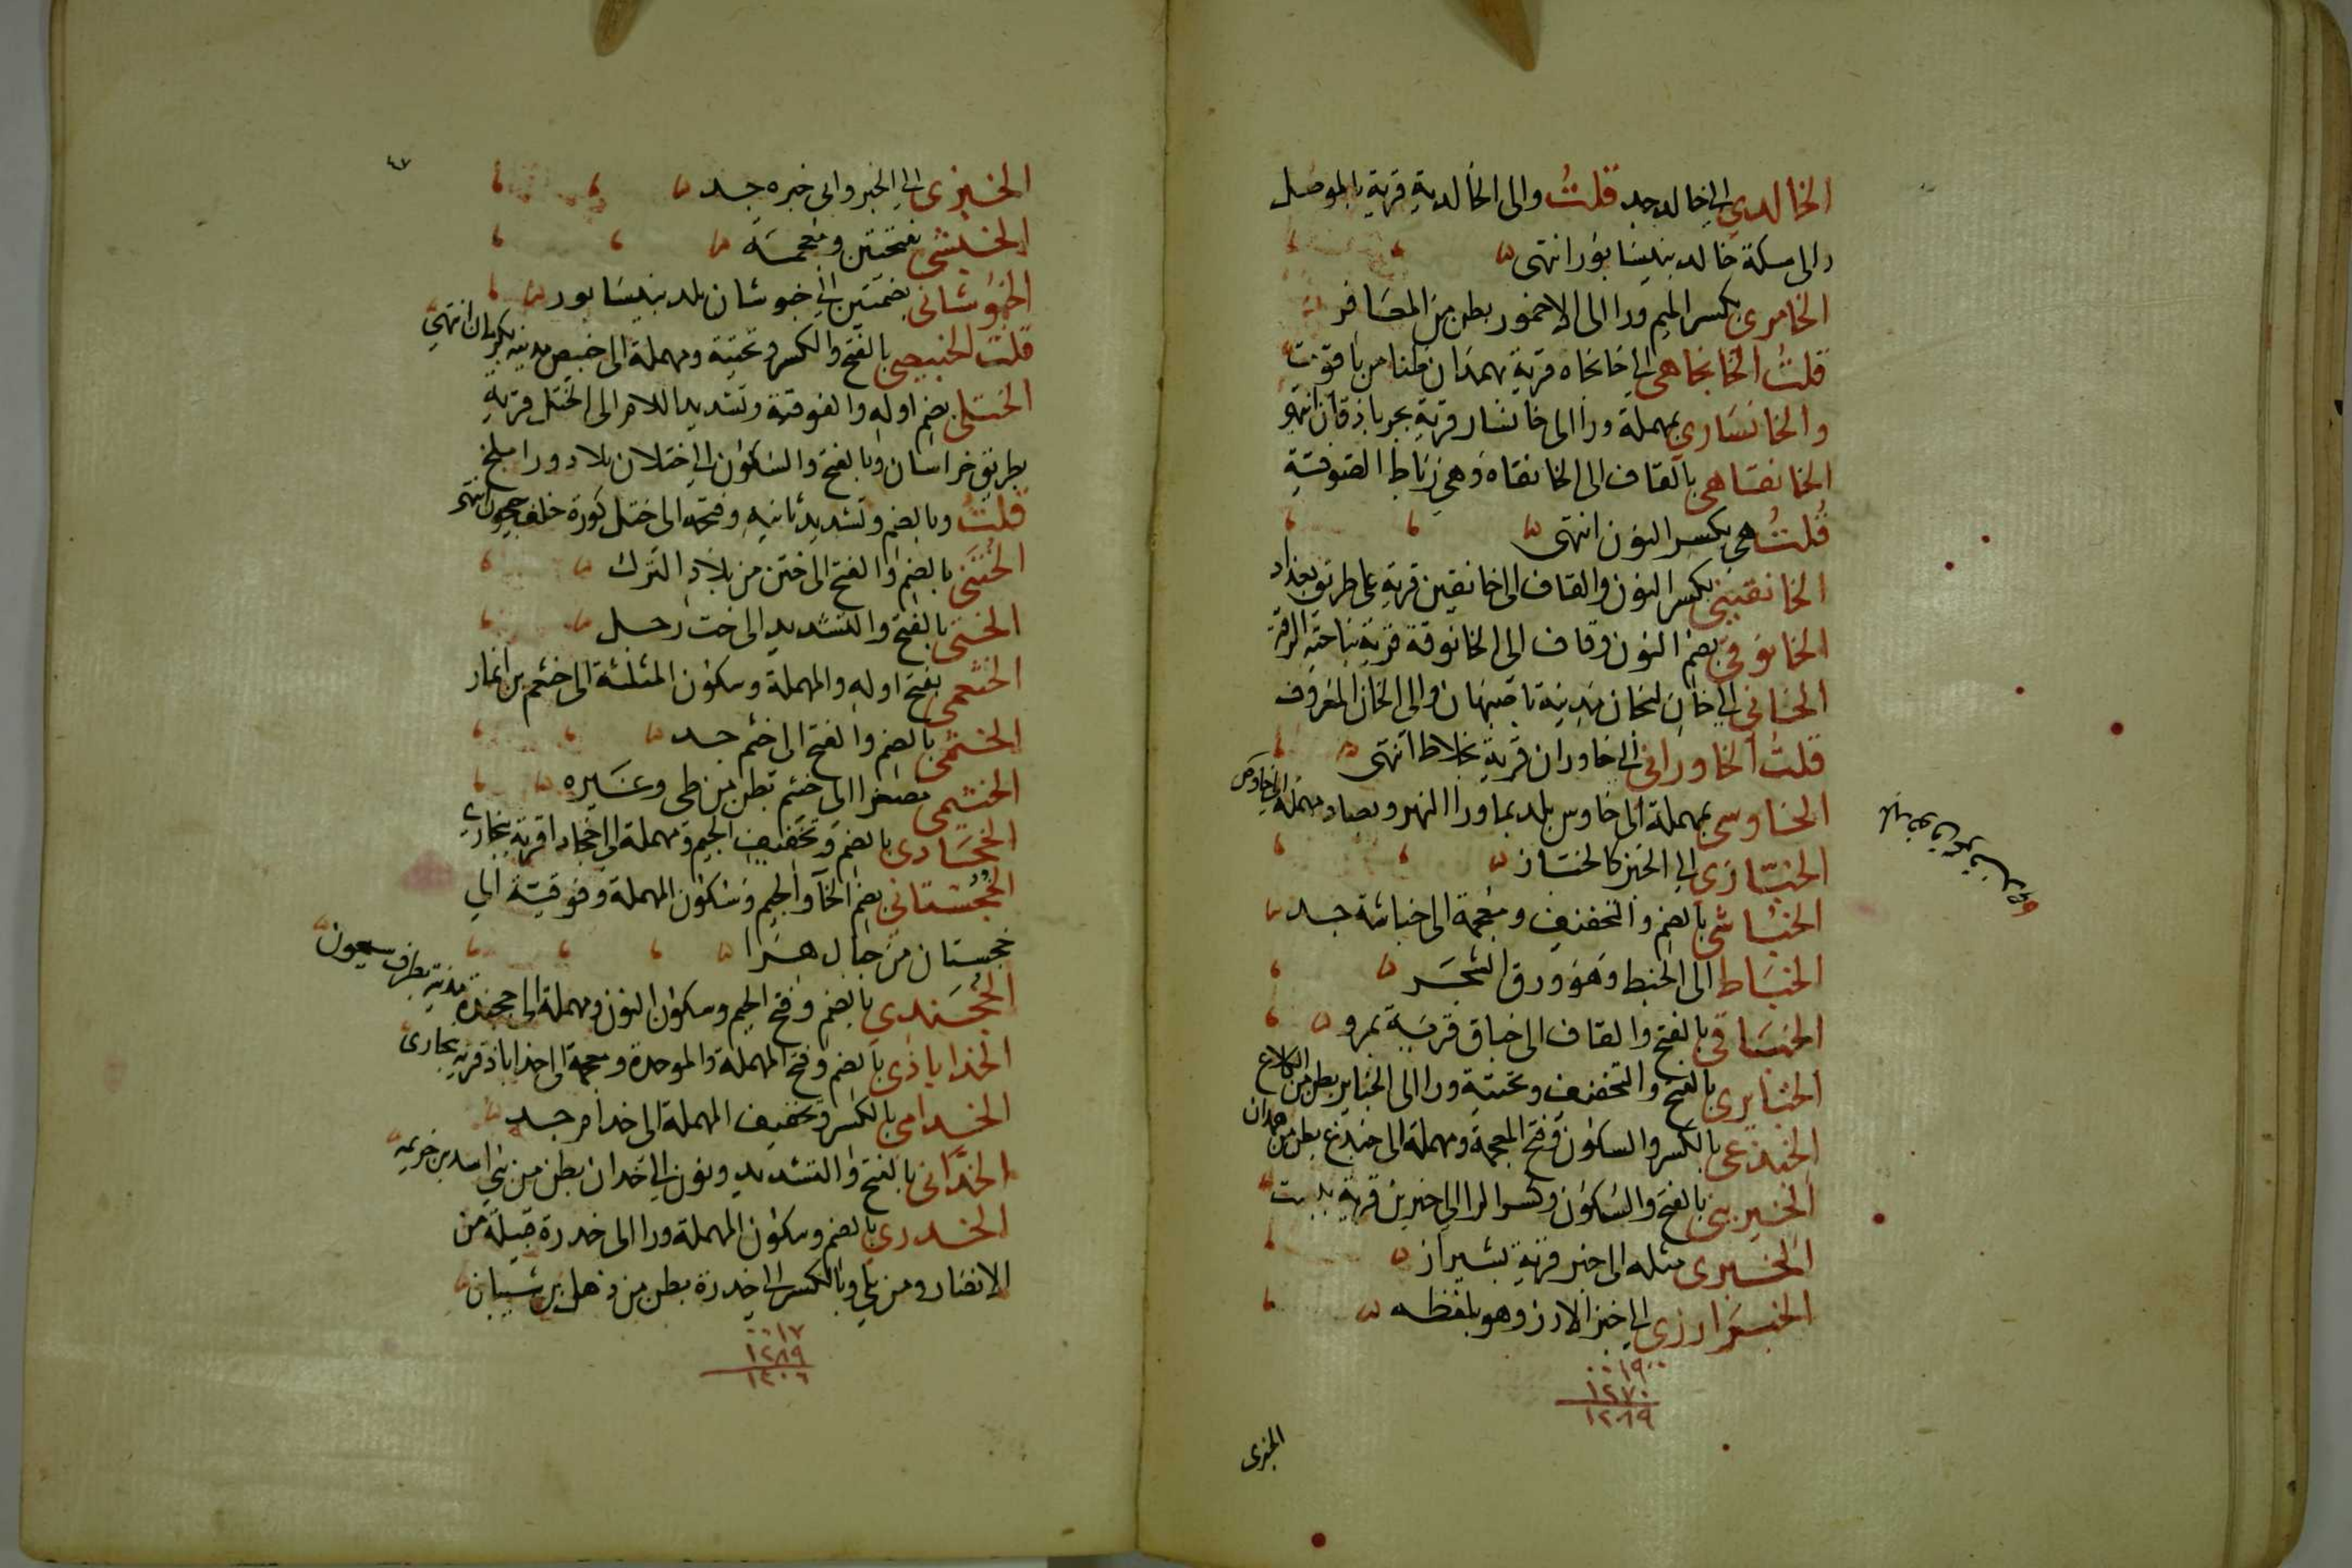 الخالدي الى خالد جد قلتُ والى الخالدية قرية بالموصل
والى سكة خالد بنيسابور انتهى
الخامري بكسر الميم ورا الى الاخمور بطن من المعافر
قلتُ الخانجاهي الى خانجاه قرية بهمذان ظنا من ياقوت
والخانساري بمهملة ورا الى خانسار قرية بجرباذقان انتهى
الخانقاهي بالقاف الى الخانقاه وهي رباط الصوفية
قلتُ هي بكسر النون انتهى
الخانقيني بكسر النون والقاف الى خانقين قرية على طريق بغداد
الخانوقي بضم النون وقاف الى الخانوقة قرية بناحية الرقة
الخاني الى خان لنجان مدينة باصبهان والى الخان المعروف
قلتُ الخاوراني الى خاوران قرية بخلاط انتهى
الخاوسي بمهملة الى خاوس بلد بما ورا النهر وبصاد مهملة الى خاوص
الخبازي الى الخبز كالخباز
الخباشي بالضم والتخفيف ومعجمة الى خباشة جد
الخباط الى الخبط وهو ورق الشجر
الخباقي بالفتح والقاف الى خباق قرية بمرو
الخبايري بالفتح والتخفيف وتحتية ورا الى الخباير بطن من الكلاع
الخبذعي بالكسر والسكون وفتح المعجمة ومهملة الى خبذع بطن من همدان
الخبريني بالفتح والسكون وكسر الرا الى خبرين قرية ببست
الخبري مثله الى خبر قرية بشيراز
الخبزارزي الى خبز الارز وهو بلفظه
٠٠١٩
١٢٧٠
١٢٨٩
الخبزي
٤٧
الخبزي الى الخبز والى خبزه جد
الخبشي بفتحتين ومعجمة
الخبوشاني بضمتين الى خبوشان بلد بنيسابور
قلت الخبيصي بالفتح والكسر وتحتية ومهملة الى خبيص مدينة بكرمان انتهى
الختلي بضم اوله والفوقية وتشديد اللام الى الختل قرية
بطريق خراسان وبالفتح والسكون الى ختلان بلاد ورا بلخ
قلتُ وبالضم وتشديد ثانيه وفتحه الى ختل كورة خلف جيحون انتهى
الختني بالضم والفتح الى ختن من بلاد الترك
الختي بالفتح والتشديد الى خت رجل
الخثعمي بفتح اوله والمهملة وسكون المثلثة الى خثعم بن انمار
الخثمي بالضم والفتح الى خثم جد
الخثيمي مصغرا الى خثيم بطن من طي وغيره
الخجادي بالضم وتخفيف الجيم ومهملة الى خجادا قرية ببخارى
الخجستاني بضم الخا والجيم وسكون المهملة وفوقية الى
خجستان من جبال هراا
الخجندي بالضم وفتح الجيم وسكون النون ومهملة الى خجندة مدينة بطرف سيحون
الخداباذي بالضم وفتح المهملة والموحدة ومعجمة الى خداباذ قرية ببخارى
الخدامي بالكسر وتخفيف المهملة الى خدام جد
الخدّاني بالفتح والتشديد ونون الى خدان بطن من بني اسد بن خزيمة
الخدري بالضم وسكون المهملة ورا الى خدرة قبيلة من
الانصار ومن بلي وبالكسر الى خدرة بطن من ذهل بن شيبان
٠٠١٧
١٢٨٩
١٣٠٦